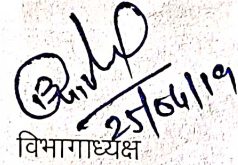 25/04/19
विभागाध्यक्ष